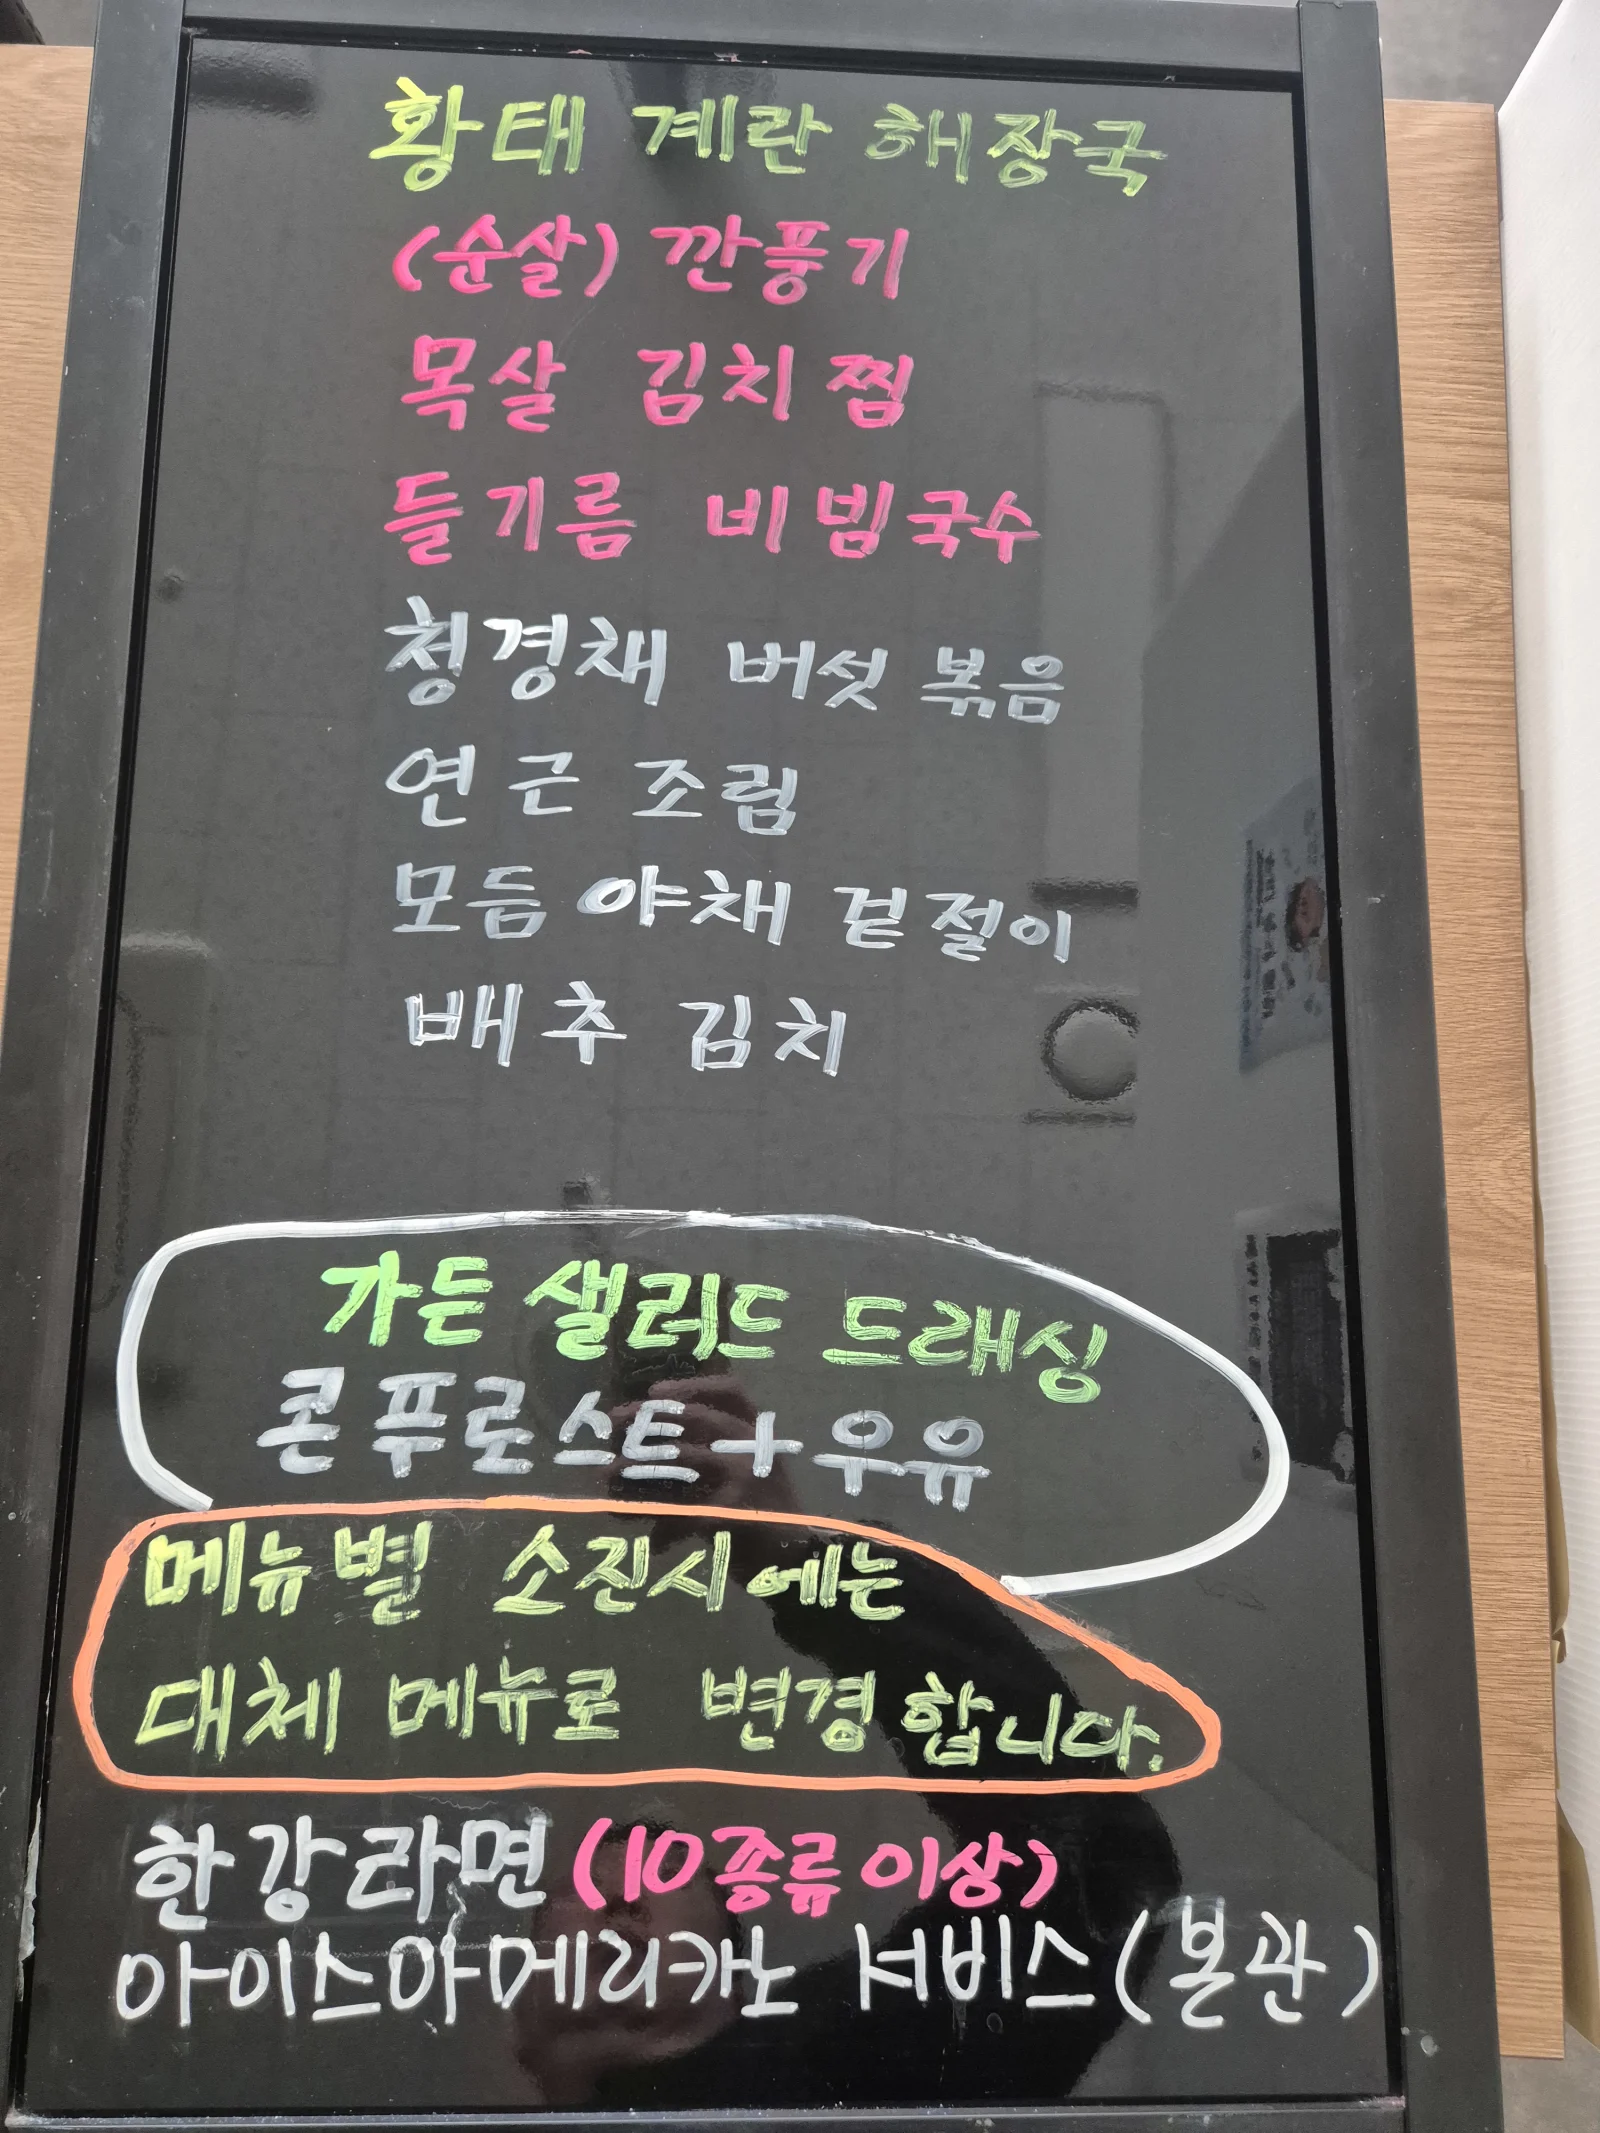 황태 계란 해장국
(순살) 깐풍기
목살 김치찜
들기름 비빔국수
청경채 버섯 볶음
연근 조림
모듬 야채 겉절이
배추 김치
가든 샐러드 드래싱
콘푸로스트+우유
메뉴별 소진시에는
대체 메뉴로 변경합니다.
한강라면 (10종류이상)
아이스아메리카노 서비스(본관)